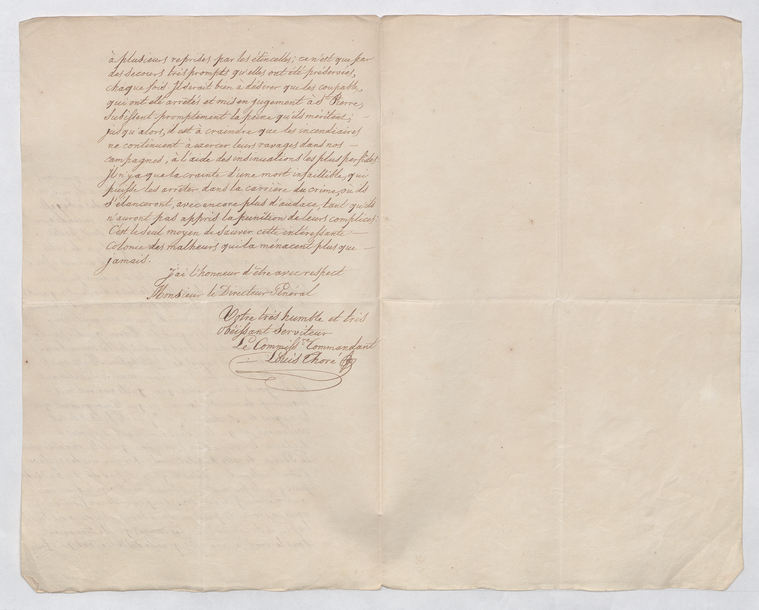 à plusieurs reprises par les étincelles; ce n'est que par
des secours très prompts qu'elles ont été préservées,
chaque fois. Il serait bien à désirer que les coupables,
qui ont été arrêtés et mis en jugement à St. Pierre,
subissent promptement la peine qu'ils méritent;
jusqu'alors, il est à craindre que les incendiaires
ne continuent à exercer leurs ravages dans nos
campagnes, à l'aide des insinuations les plus perfides.
Il n'y a que la crainte d'une mort infaillible, qui
puisse les arrêter dans la carrière du crime, où ils
s'élanceront, avec encore plus d'audace, tant qu'ils
n'auront pas appris la punition de leurs complices.
C'est le seul moyen de sauver cette intéressante
colonie des malheurs qui la menacent plus que
jamais.
J'ai l'honneur d'être avec respect
Monsieur le Directeur Général
Votre très humble et très
obéissant Serviteur
Le Commissre. Commandant
Louis Thoré